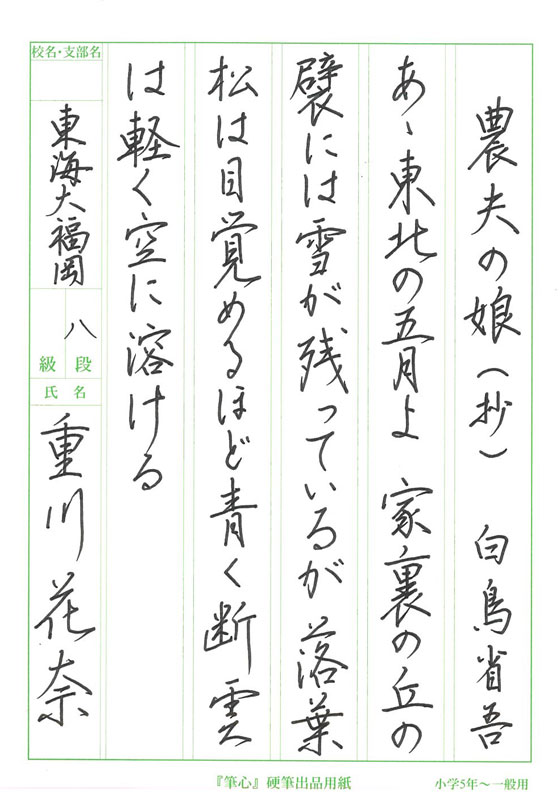 農夫の娘（抄）　白鳥省吾
あゝ東北の五月よ　家裏の丘の
襞には雪が残っているが　落葉
松は目覚めるほど青く断雲
は軽く空に溶ける
校名・支部名
東海大福岡
八
段
級
氏名
重川花奈
『筆心』硬筆出品用紙
小学5年〜一般用